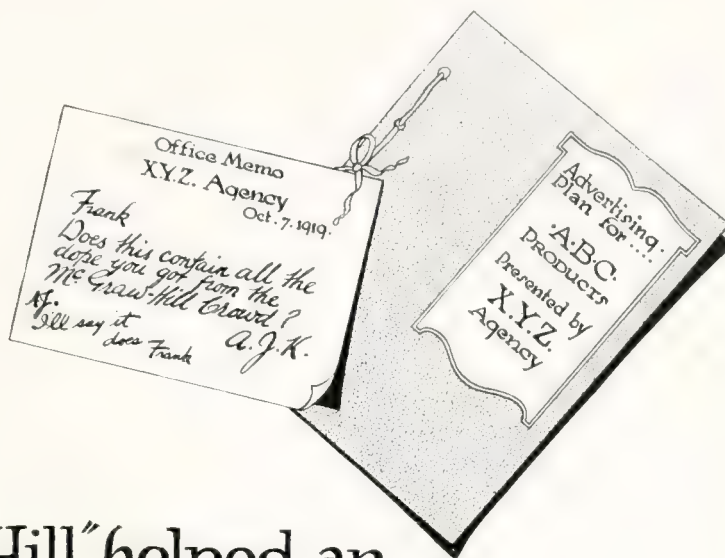 Office Memo
X.Y.Z. Agency
Oct. 7. 1919.
Frank
Does this contain all the
dope you got from the
McGraw-Hill Crowd?
A.J.K.
I'll say it
does Frank
Advertising
Plan for....
A·B·C·
PRODUCTS
Presented by
X.Y.Z.
Agency
Hill" helped an